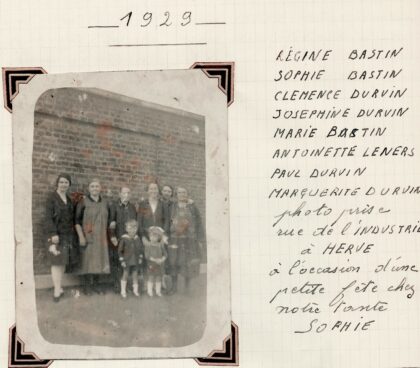 1929
RÉGINE BASTIN
SOPHIE BASTIN
CLEMENCE DURVIN
JOSEPHINE DURVIN
MARIE BASTIN
ANTOINETTE LENERS
PAUL DURVIN
MARGUERITE DURVIN
photo prise
rue de l'INDUSTRIE
à HERVE
à l'occasion d'une
petite fête chez
notre tante
SOPHIE